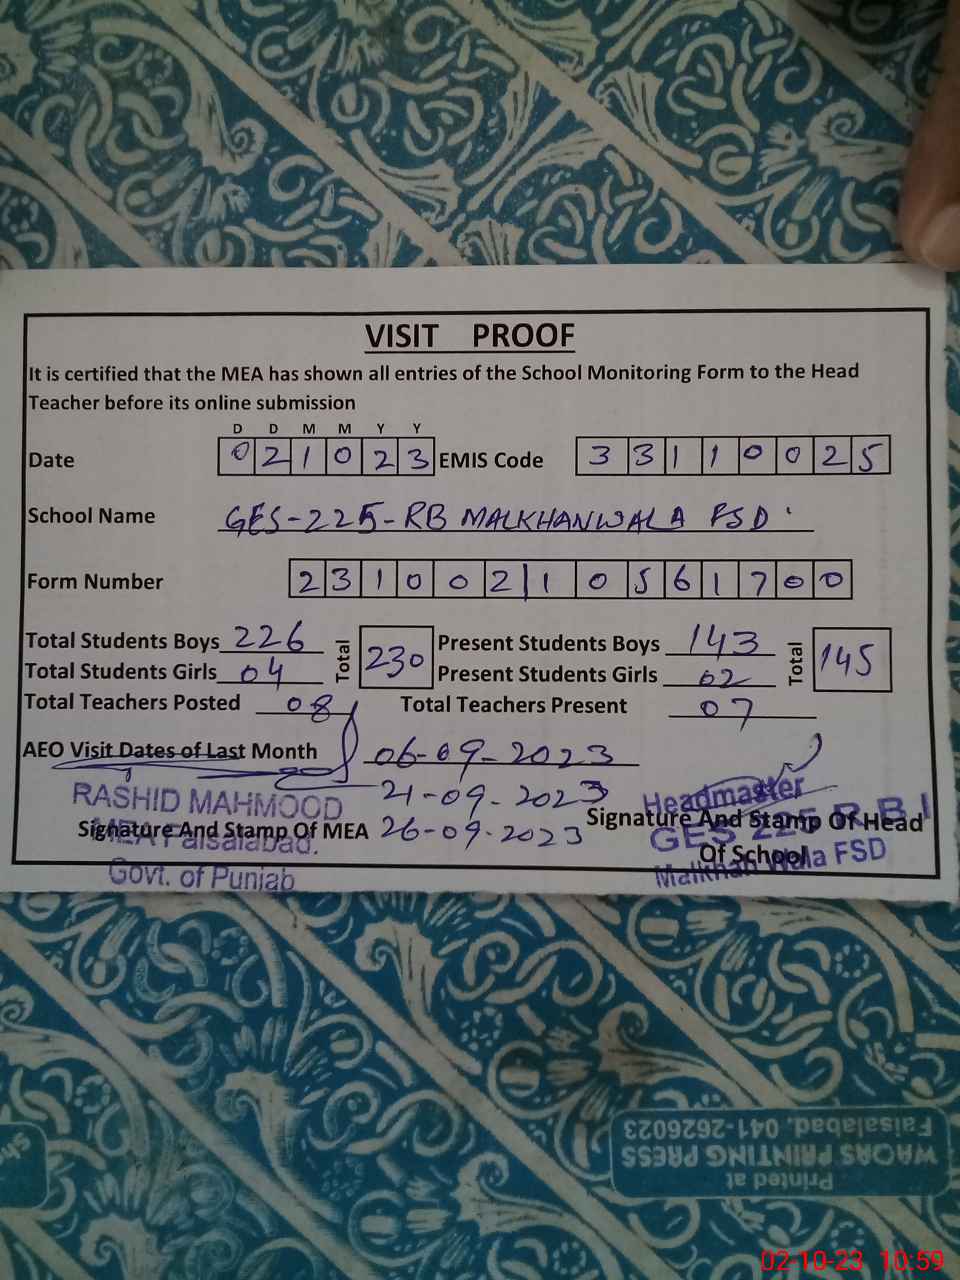 VISIT PROOF
It is certified that the MEA has shown all entries of the School Monitoring Form to the Head
Teacher before its online submission
D D M M Y Y
Date 0 2 1 0 2 3 EMIS Code 3 3 1 1 0 0 2 5
School Name GES-225-RB MALKHANWALA FSD
Form Number 2 3 1 0 0 2 1 0 5 6 1 7 0 0
Total Students Boys 226 Total 230 Present Students Boys 143 Total 145
Total Students Girls 04 Present Students Girls 02
Total Teachers Posted 08 Total Teachers Present 07
AEO Visit Dates of Last Month 06-09-2023
21-09-2023
26-09-2023
RASHID MAHMOOD
MEA Faisalabad.
Govt. of Punjab
Signature And Stamp Of MEA
Headmaster
GES 225 R.B
Malkhan Wala FSD
Signature And Stamp Of Head
Of School
Printed at
WAQAS PRINTING PRESS
Faisalabad. 041-2626023
02-10-23 10:59